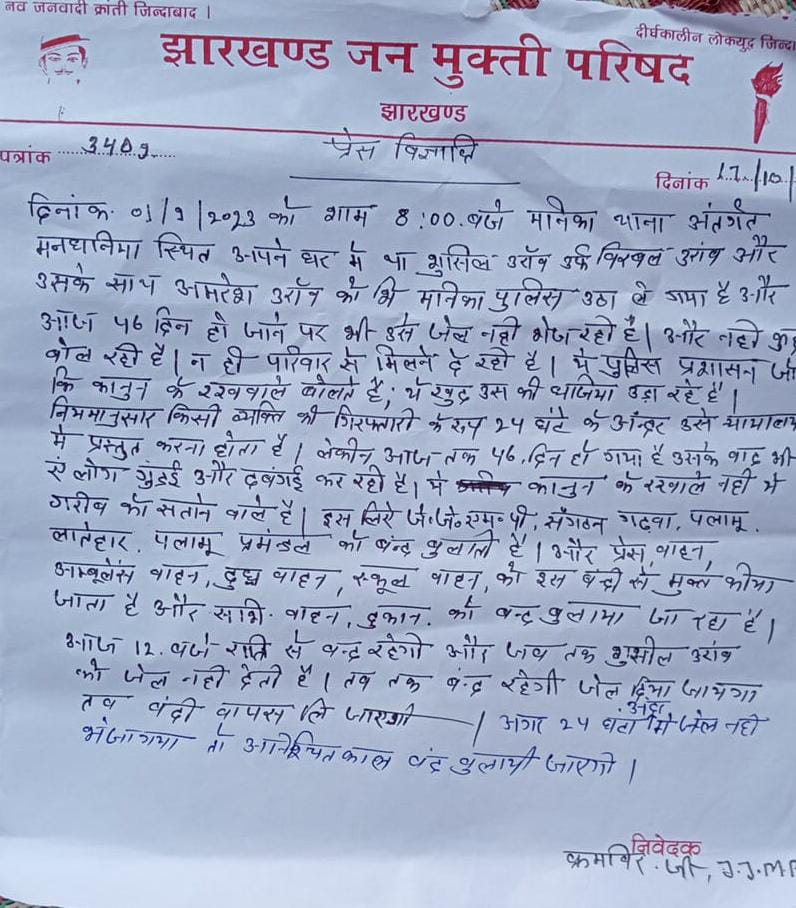 नव जनवादी क्रांती जिन्दाबाद ।
दीर्घकालीन लोकयुद्ध जिन्दा
झारखण्ड जन मुक्ती परिषद
झारखण्ड
पत्रांक 3409
प्रेस विज्ञप्ति
दिनांक 17/10/
दिनांक 01/9/2023 को शाम 8:00 बजे मनिका थाना अंतर्गत
स्थित अपने घर में था सुसिल उराँव उर्फ विरबल उरांव और
उसके साथ अमरेश उराँव को भि मनिका पुलिस उठा ले गया है और
आज 46 दिन हो जाने पर भी उसे जेल नही भेज रही है। और नही कुछ
बोल रही है। न ही परिवार से मिलने दे रही है। ये पुलिस प्रशासन जो
कि कानुन के रखवाले बोलते है; ये खुद उस की धाजिया उड़ा रहे है।
नियमानुसार किसी व्यक्ति की गिरफ्तारी के 24 घंटे के अन्दर उसे न्यायालय
मे प्रस्तुत करना होता है। लेकीन आज तक 46 दिन हो गया है उसके बाद भी
ऐ लोग गुंडई और दबंगई कर रही है। ये कानुन के रखवाले नही ये
गरीब को सताने वाले है। इस लिऐ जे॰जे॰एम॰पी, संगठन गढ़वा, पलामू,
लातेहार, पलामू प्रमंडल को बन्द बुलाती है। और प्रेस, वाहन,
अम्बूलेंस वाहन, दुध वाहन, स्कूल वाहन, को इस बन्दी से मुक्त कीया
जाता है और सभि वाहन, दुकान, को बन्द बुलाया जा रहा है।
आज 12 बजे रात्रि से बन्द रहेगी और जब तक सुसील उरांव
को जेल नही देती है। तब तक बंन्द रहेगी जेल दिया जायगा
तब बंदी वापस लि जाएगी । अगर 24 घंटा अंदर मे जेल नही
भेजा गया तो अनिश्चित काल बंद बुलायी जाएगी ।
निवेदक
क्रमविर जी, J.J.M.P